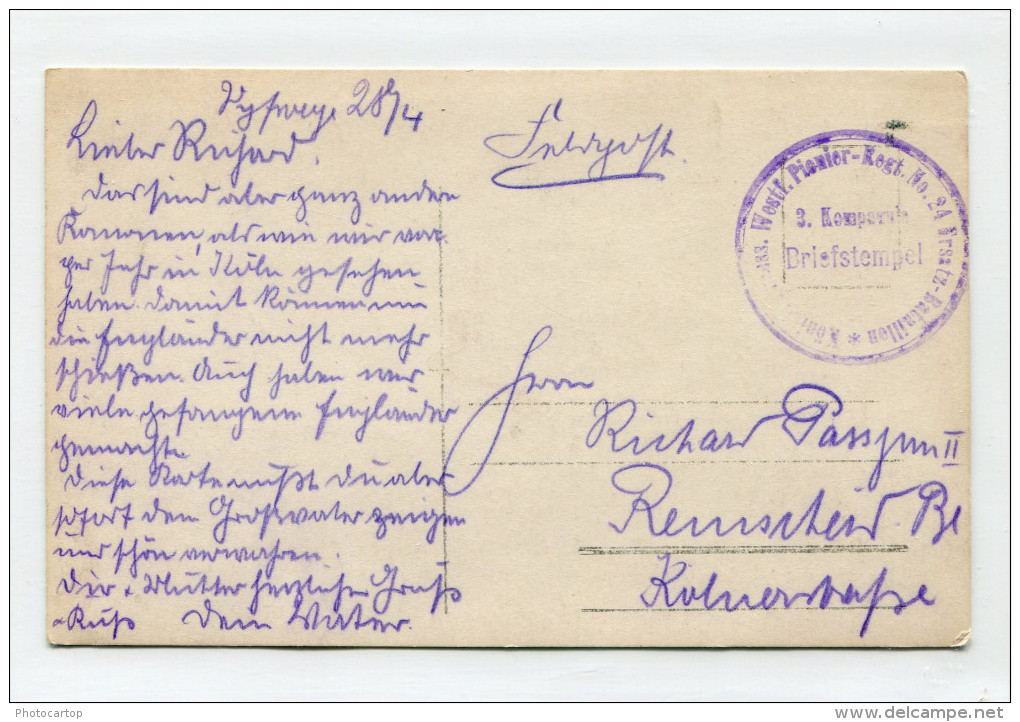 28/4
Lieber Richard.
Das sind aber ganz andere
Kanonen, als wie wir vori-
ger Jahr in Köln gesehen
haben. Damit können wir
die Engländer nicht mehr
schießen. Auch haben wir
viele gefangene Engländer
gemacht.
Diese Karte mußt Du aber
sofort dem Großvater zeigen
und schön verwahren.
Dir + Mutter herzlicher Gruß
+ Kuß Dein Vater.
Feldpost.
Westf. Pionier-Regt. No. 24 Ersatz-Bataillon *
3. Kompanie
Briefstempel
Herrn
Richard II
Remscheid.
Kölnerstraße
Photocartop
delcampe.net